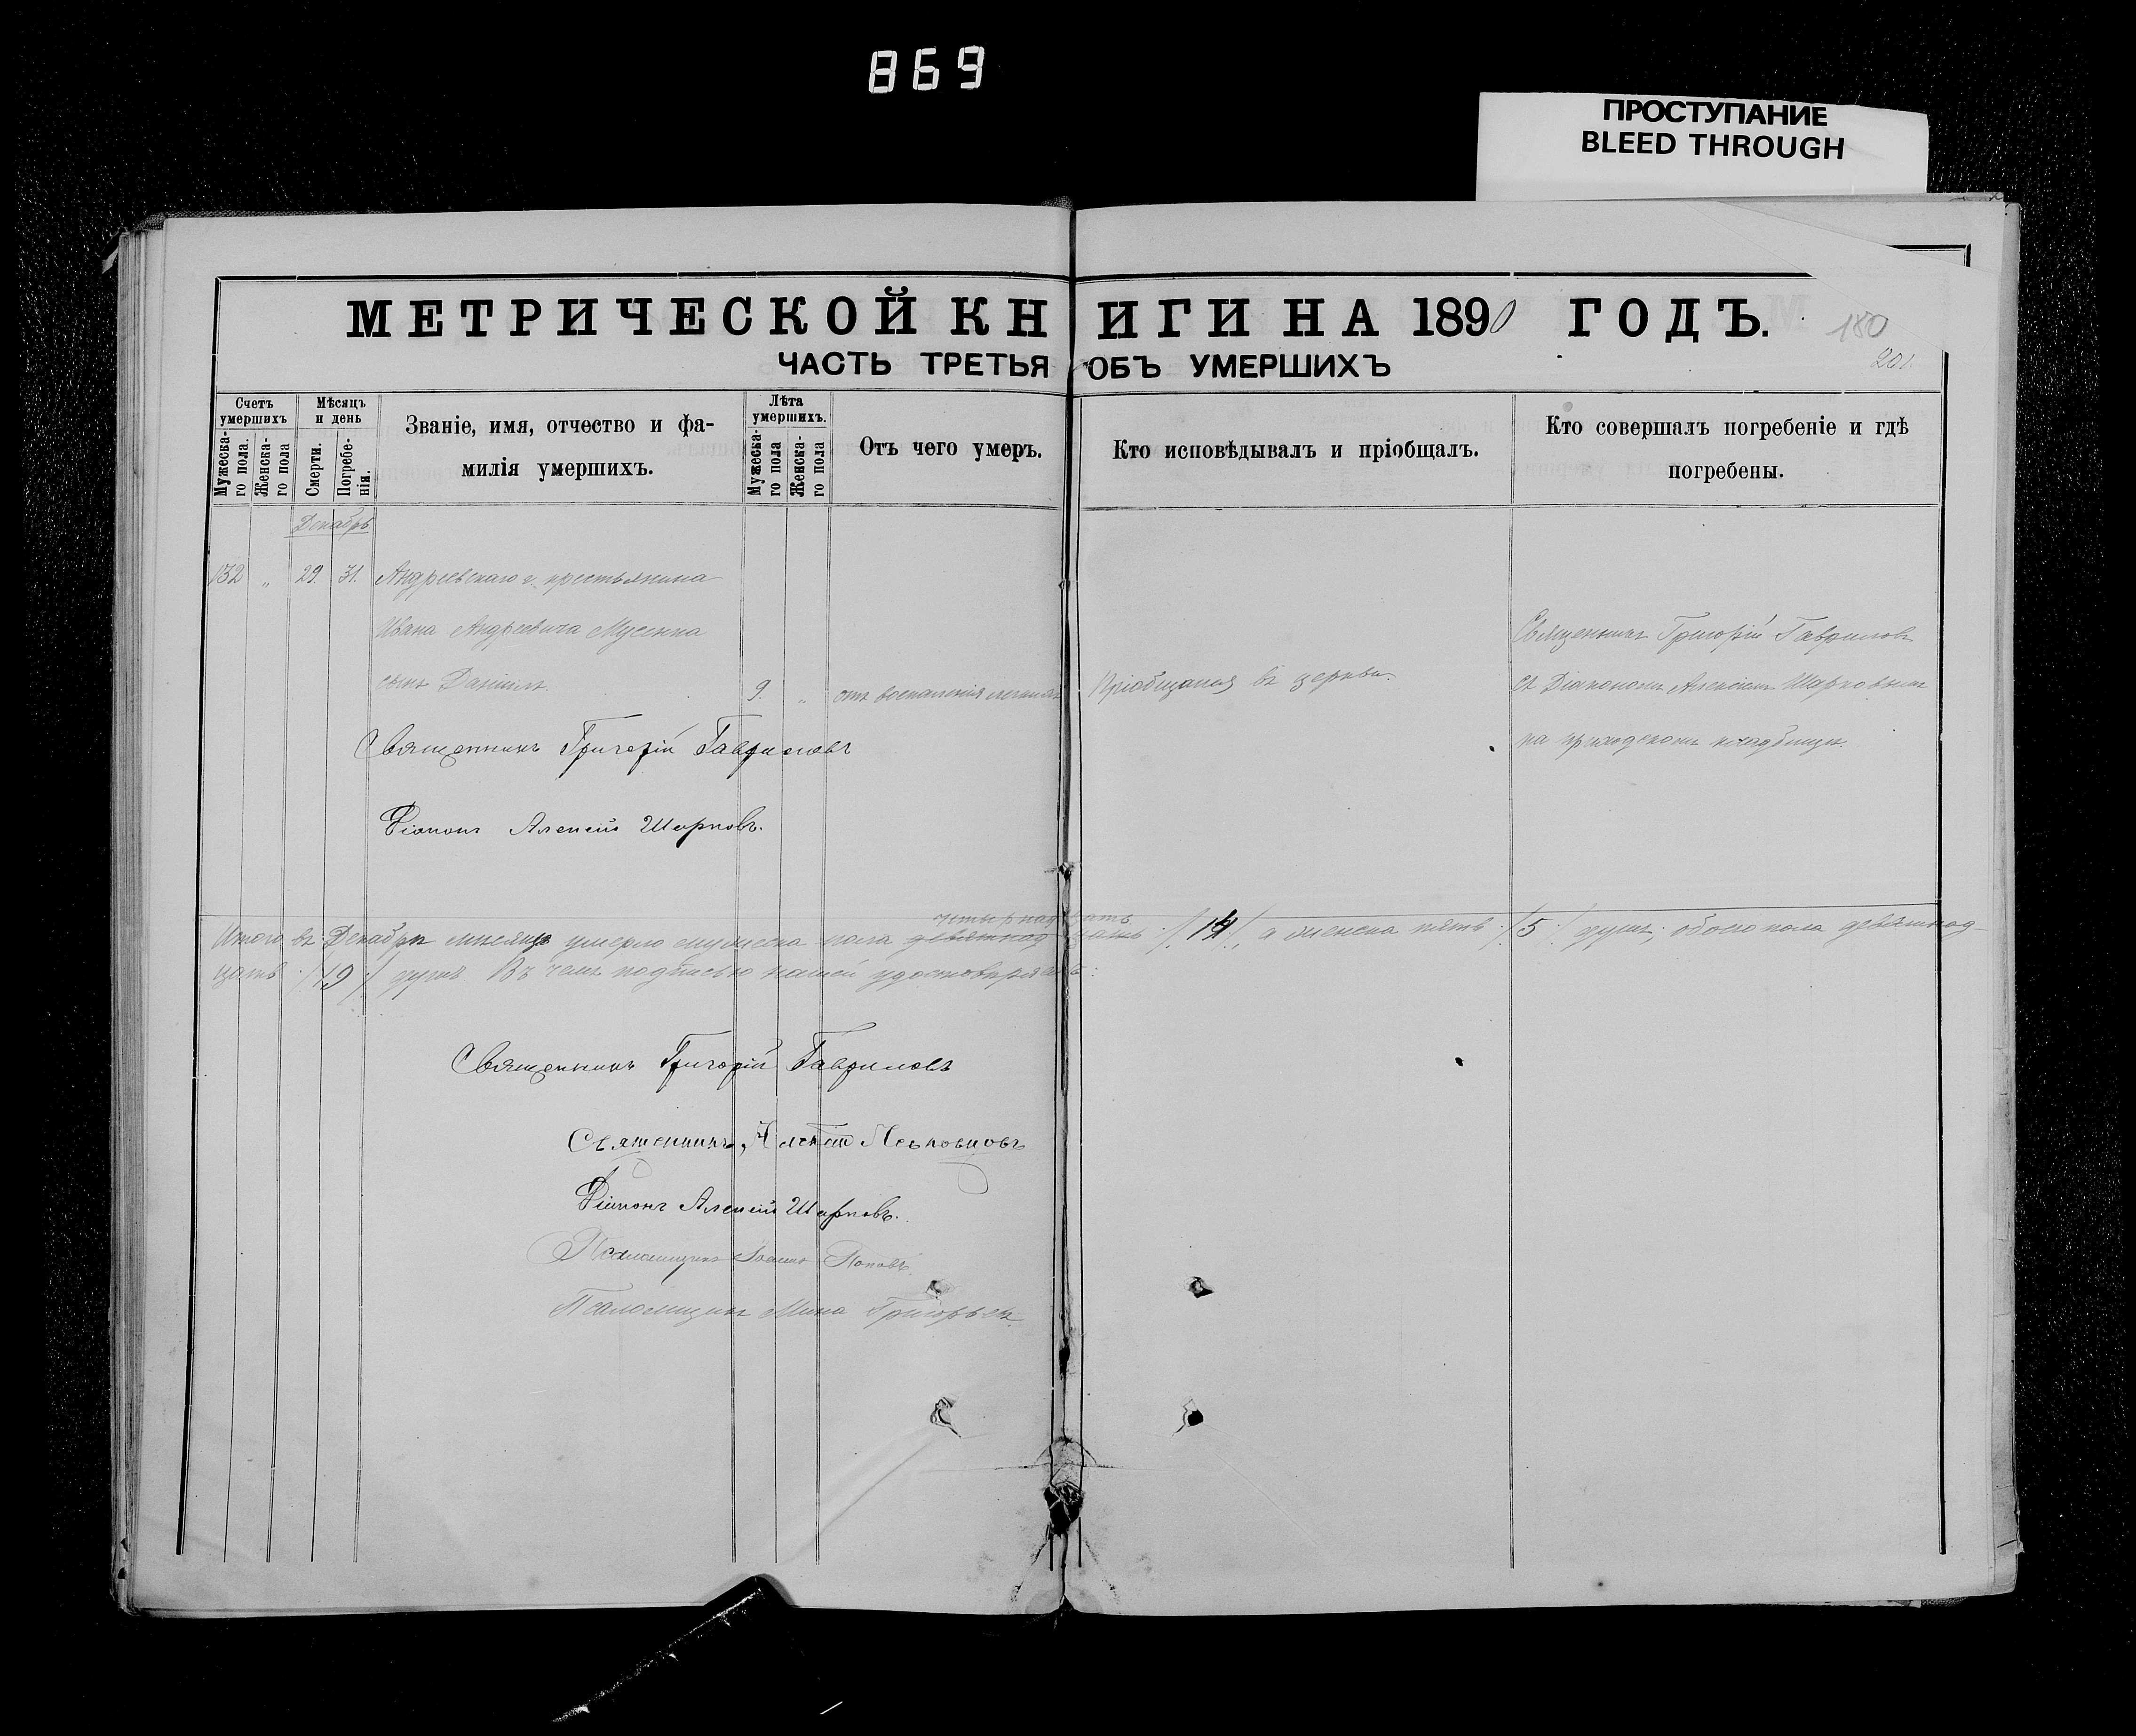 869
ПРОСТУПАНИЕ
BLEED THROUGH
МЕТРИЧЕСКОЙ КНИГИ НА 1890 ГОДЪ.
180
ЧАСТЬ ТРЕТЬЯ ОБЪ УМЕРШИХЪ
201.
Счетъ умершихъ
Мужеска-го пола.
Женска-го пола
Мѣсяцъ и день
Смерти.
Погребе-нія.
Званіе, имя, отчество и фа-
милія умершихъ.
Лѣта умершихъ.
Мужеска-го пола
Женска-го пола
Отъ чего умеръ.
Кто исповѣдывалъ и пріобщалъ.
Кто совершалъ погребеніе и гдѣ
погребены.
Декабрь
132 „ 29. 31. Андреевскаго с. крестьянина
Ивана Андреевича Мусенка
сынъ Даніилъ. 9. „ отъ воспаленія легкихъ Пріобщался въ церкви.
Священникъ Григорій Гавриловъ
съ Діакономъ Алексіемъ Шарковымъ
на приходскомъ кладбищѣ.
Священникъ Григорій Гавриловъ
Діаконъ Алексій Шарковъ.
четырнадцать
Итого въ Декабрѣ мѣсяцѣ умерло мужеска пола девятнадцать /:14:/, а женска пять /:5:/ душъ; обоего пола девятнад-
цать /:19:/ душъ. Въ чемъ подписью нашей удостовѣряемъ:
Священникъ Григорій Гавриловъ
Священникъ, Алексій
Діаконъ Алексій Шарковъ.
Псаломщикъ Іоаннъ Поповъ.
Псаломщикъ Мина Григорьевъ.